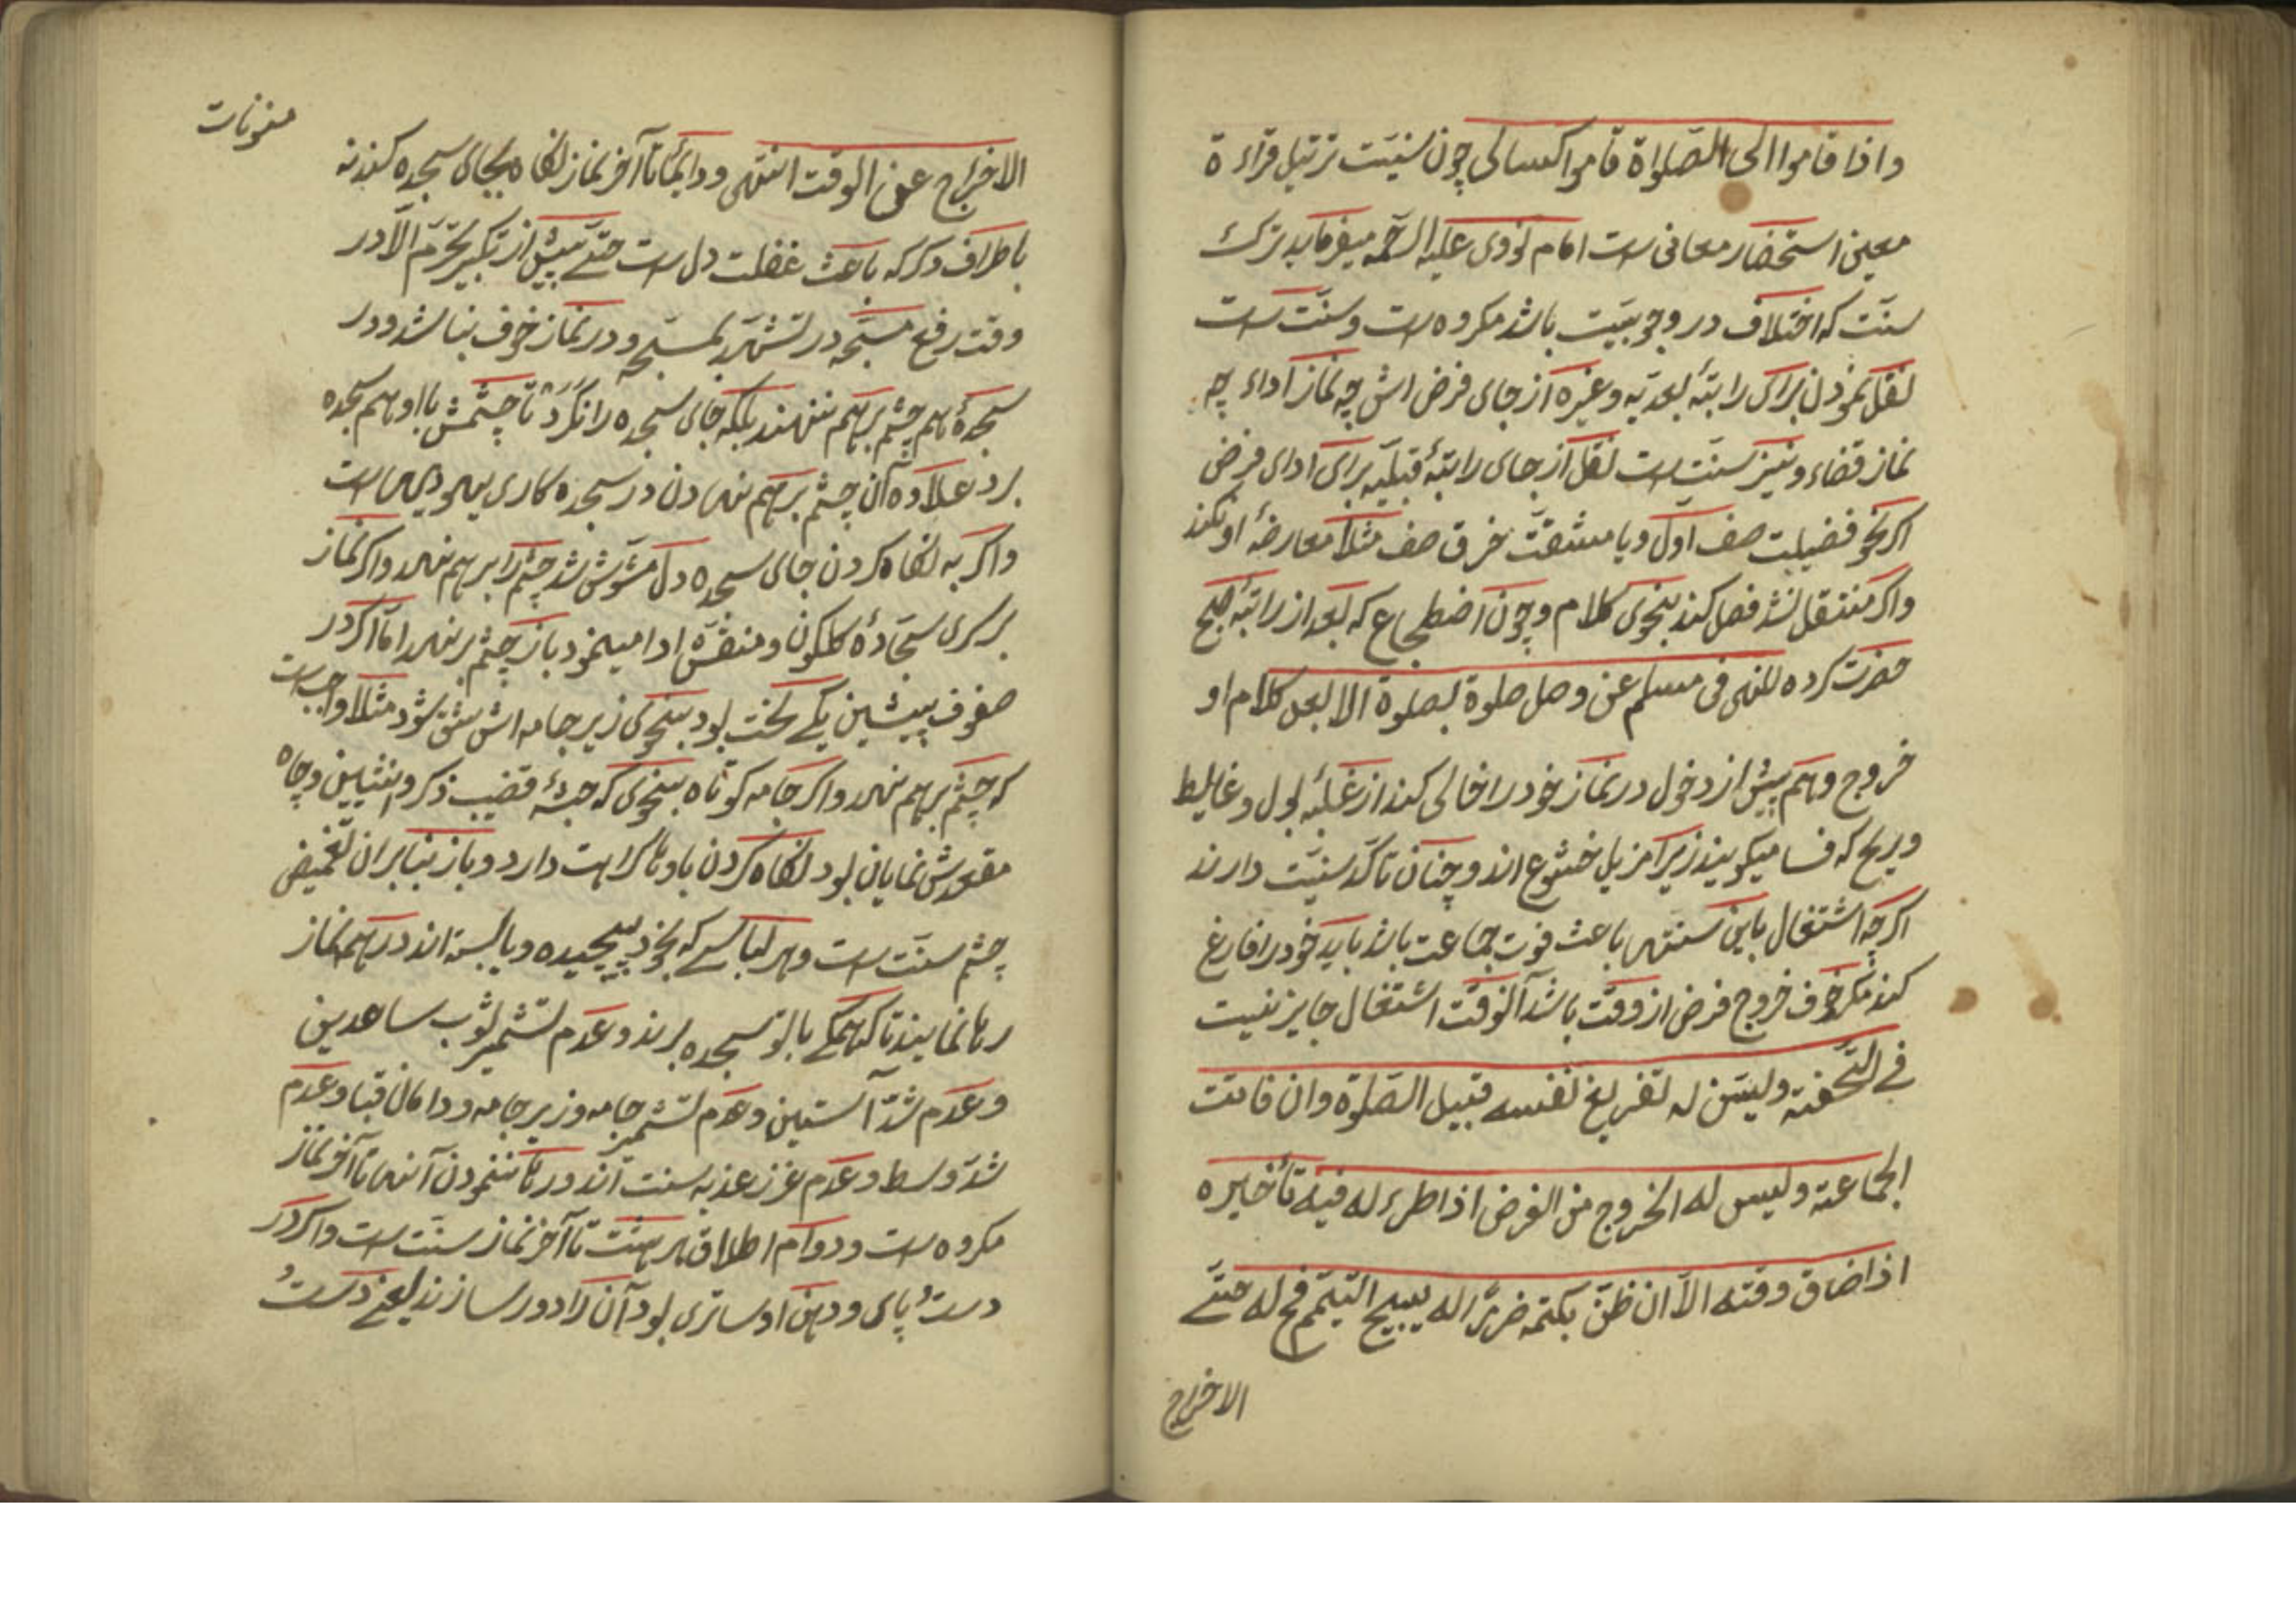 واذا قاموا الی الصّلواة قاموا کسالی چون سنیّت ترتیل قراءة
معین استحضار معانی ست امام نووی علیه الرّحمه میفرماید ترک
سنّت که اختلاف در وجوبیّت باشد مکروه ست و سنّت ست
نقل نمودن برای راتبۀ بعدیّه و غیره از جای فرض اش چه نماز اداء چه
نماز قضاء و نیز سنّت ست نقل از جای راتبۀ قبلیّه برای ادای فرض
اکر نحو فضیلت صف اوّل و یا مشقّت خرق صف مثلا معارضۀ او نکند
و اکر منتقل نشد فصل کند بنحوی کلام و چون اضطجاع که بعد از راتبۀ صبح
حضرت کرده للنهی فی مسلم عن وصل صلوة بصلوة الا بعد کلام او
خروج و هم پیش از دخول در نماز خود را خالی کند از غلبۀ بول و غایط
و ریح که فسا میکویند زیرا مزیل خشوع اند و چنان تاکّد سنیّت دارند
اکرچه اشتغال باین سنتها باعث فوت جماعت باشد باید خود را فارغ
کند مکر خوف خروج فرض از وقت باشد آنوقت اشتغال جایز نیست
فی التّحفته ولیسّن له تفریغ نفسه قبیل الصّلوة وان فاتت
الجماعته ولیس له الخروج من الفرض اذا طرء له فیه تأخیره
اذا ضاق وقته الّا ان ظنّ بکتمه ضررًا له یبیح التّیمّم فح له حتّی
الاخراج
منونات
الاخراج عن الوقت انتهی و دایمًا تا آخر نماز نکاه بجای سجده کند نه
باطراف دکر که باعث غفلت دل ست حتّی پیش از تکبیر تحرّم الّا در
وقت رفع مسبّحه در تشهّد بمسبّحه و در نماز خوف بنا شد و در
سجدۀ هم چشم برهم ننهند بلکه جای سجده را نکرد تا چشمش با او هم سجده
برد علاوه آن چشم برهم نهادن در سجده کاری یهودیها ست
و اکر به نکاه کردن جای سجده دل مشوّش شد چشم را برهم نهد و اکر نماز
بر سری سجّادۀ کلکون و منقّش ادا مینمود باز چشم بر نهد امّا اکر در
صفوف پیشین یکی لخت بود بنحوی زیر جامه اش شق شود مثلا واجب ست
که چشم برهم نهد و اکر جامه کوتاه بنحوی که جثۀ قضیب ذکر و انثیین و چاه
مقعدش نمایان بود نکاه کردن باوها کراهت دارد و باز بنا بران تغمیض
چشم سنّت ست و هر لباسی که بخود پیچیده و یا بسته اند در هم نماز
رها نمایند تا کهمکی بالتو سجده برند و عدم تشمیر لثوب ساعدین
و عدم شدّ آستین و عدم تشمیر جامه و زیر جامه و دامان قبا و عدم
شدّ وسط و عدم غرز عذبه سنت اند و رها ننمودن آنها تا آخر نماز
مکروه ست و دوام اطلاق هر هشت تا آخر نماز سنّت ست و اکر در
دست و پای و دهن او ساتری بود آن را دور سازند یعنی دست و